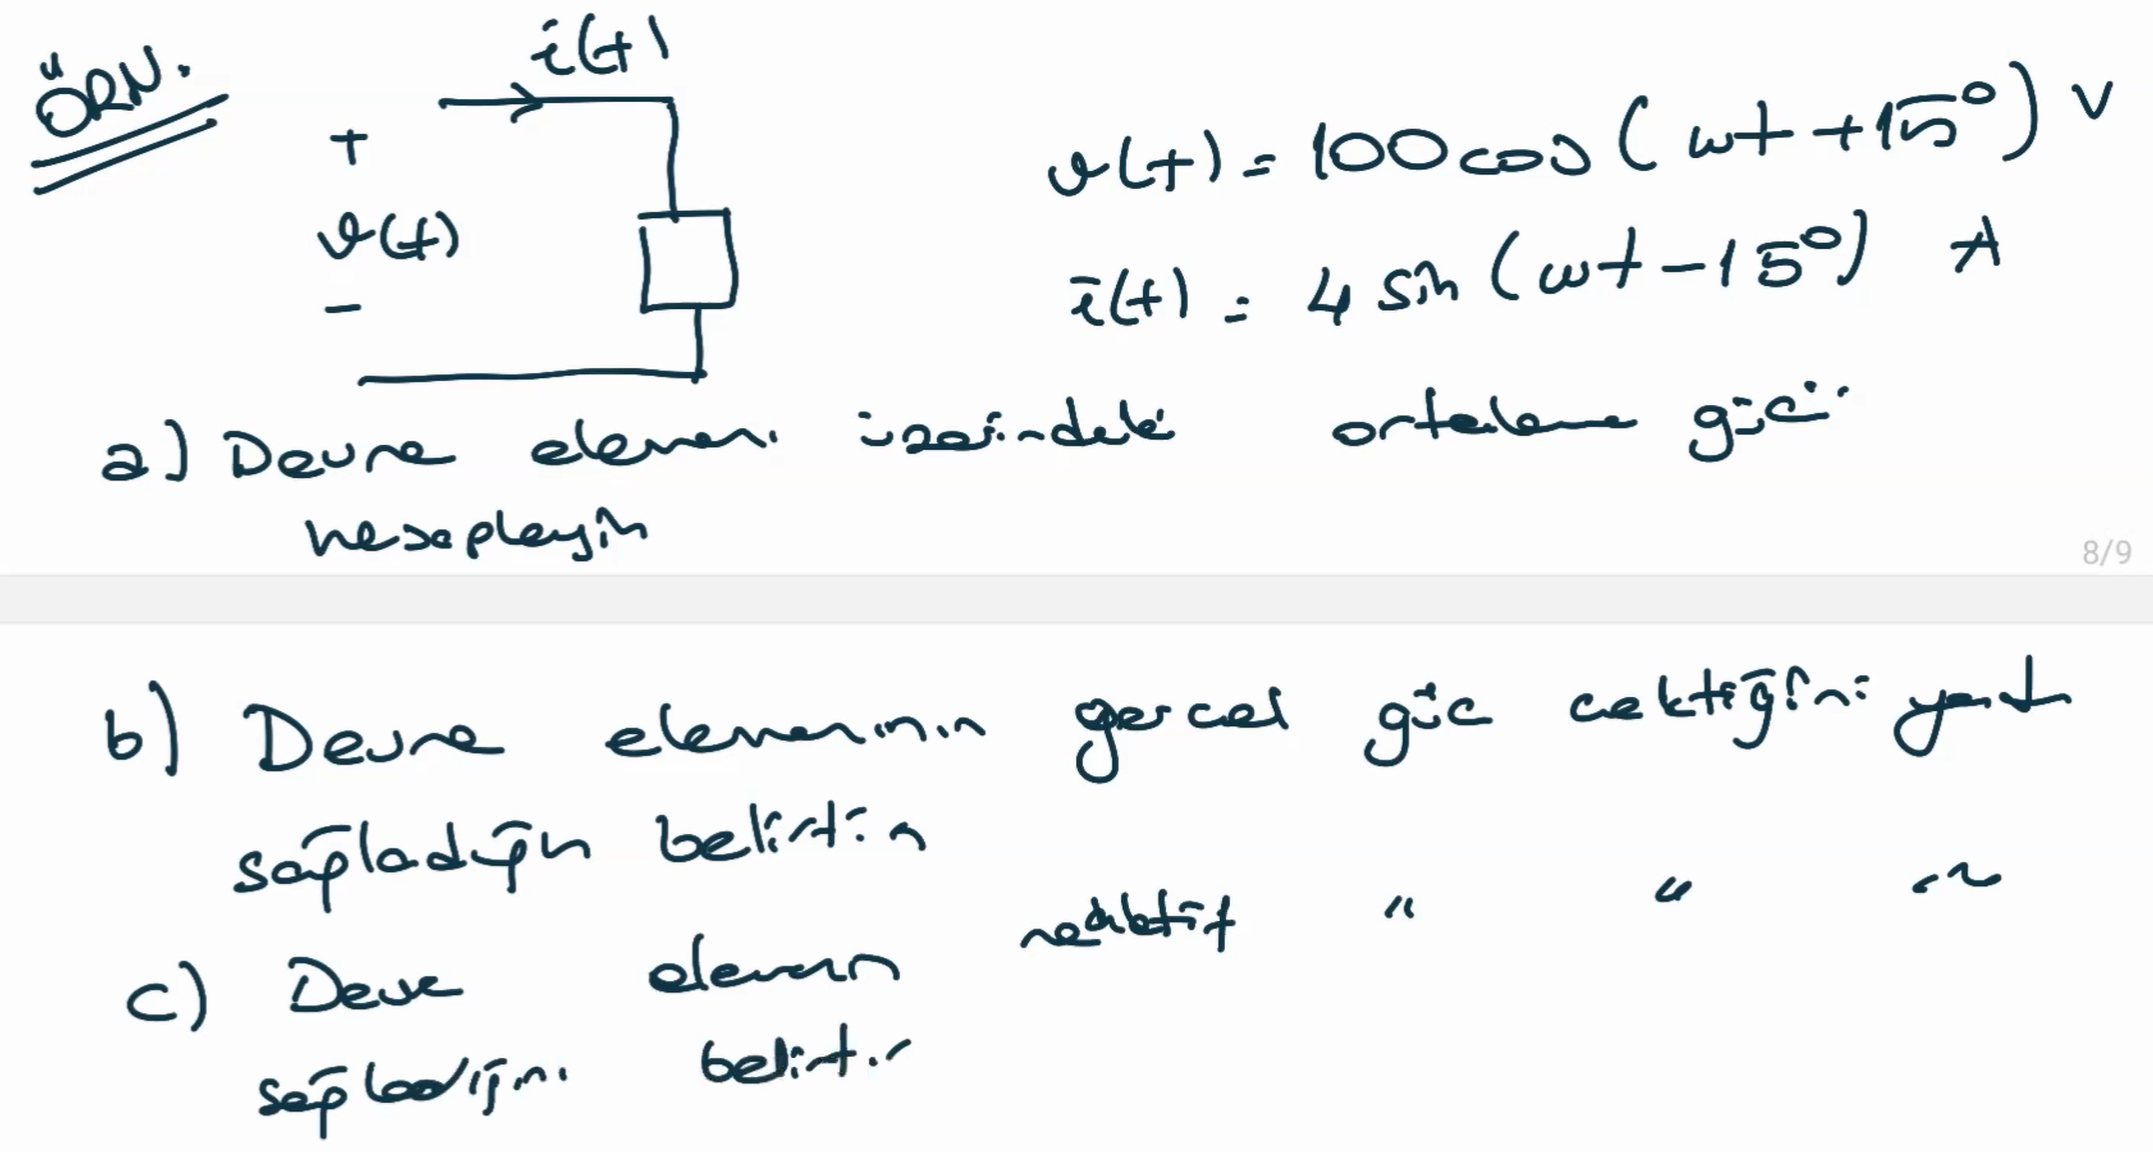 ÖRN.
i(t)
+
v(t)
-
v(t) = 100 cos (ωt + 15°) V
i(t) = 4 sin (ωt - 15°) A
a) Devre elemanı üzerindeki ortalama gücü
hesaplayın
8/9
b) Devre elemanının gerçel güç çektiğini yada
sağladığın belirtin
c) Devre elemanın reaktif " " "
sağladığını belirtin